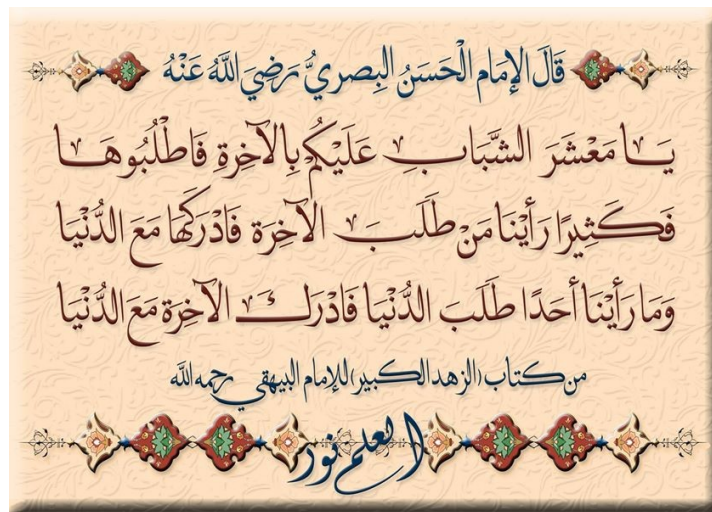 قَالَ الإِمَام الْحَسَنُ البِصريُّ رَضِيَ اللَّهُ عَنْهُ
يَا مَعْشَرَ الشَّبَابِ عَلَيْكُمْ بِالآخِرَةِ فَاطْلُبُوهَا
فَكَثِيرًا رَأَيْنَا مَنْ طَلَبَ الآخِرَة فَادْرَكَهَا مَعَ الدُّنْيَا
وَمَا رَأَيْنَا أَحَدًا طَلَبَ الدُّنْيَا فَادْرَكَ الآخِرَة مَعَ الدُّنْيَا
من كتاب (الزهد الكبير) للإمام البيهقي رحمه الله
العلم نور